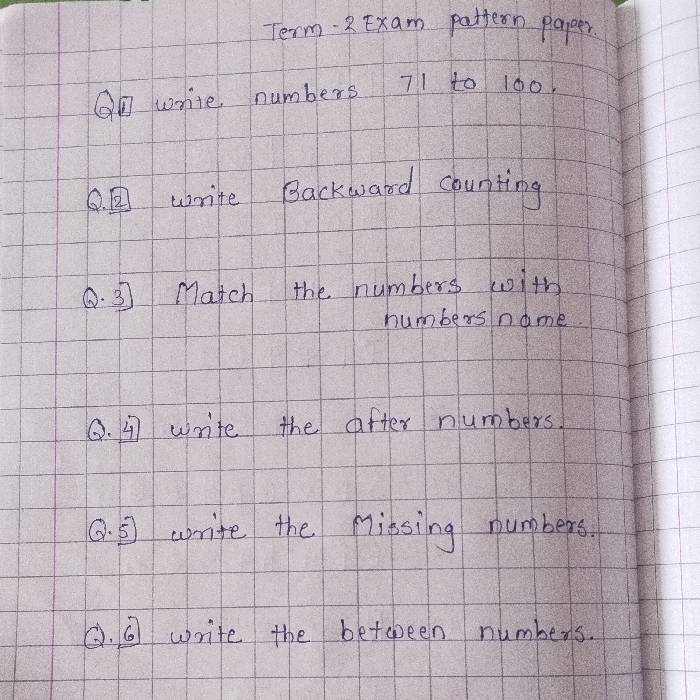 Term - 2 Exam pattern paper.
Q 1] write numbers 71 to 100.
Q. 2] write Backward counting
Q. 3] Match the numbers with
numbers name.
Q. 4] write the after numbers.
Q. 5] write the Missing numbers.
Q. 6] write the between numbers.